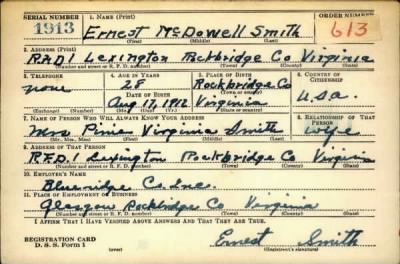 SERIAL NUMBER 1. NAME (Print) ORDER NUMBER
1913 Ernest McDowell Smith 613
(First) (Middle) (Last)
2. ADDRESS (Print)
R.F.D 1 Lexington Rockbridge Co Virginia
(Number and street or R. F. D. number) (Town) (County) (State)
3. TELEPHONE 4. AGE IN YEARS 5. PLACE OF BIRTH 6. COUNTRY OF CITIZENSHIP
none 28 Rockbridge Co U.S.a.
DATE OF BIRTH
Aug 17, 1912 Virginia
(Exchange) (Number) (Mo.) (Day) (Yr.) (State or country)
7. NAME OF PERSON WHO WILL ALWAYS KNOW YOUR ADDRESS 8. RELATIONSHIP OF THAT PERSON
Mrs Pinie Virginia Smith wife
(Mr., Mrs., Miss) (First) (Middle) (Last)
9. ADDRESS OF THAT PERSON
R.F.D. 1 Lexington Rockbridge Co Virginia
(Number and street or R. F. D. number) (Town) (County) (State)
10. EMPLOYER'S NAME
Blueridge Co. Inc.
11. PLACE OF EMPLOYMENT OR BUSINESS
Glasgow Rockbridge Co Virginia
(Number and street or R. F. D. number) (Town) (County) (State)
I AFFIRM THAT I HAVE VERIFIED ABOVE ANSWERS AND THAT THEY ARE TRUE.
REGISTRATION CARD
D. S. S. Form 1 (over) Ernest Smith
(Registrant's signature)